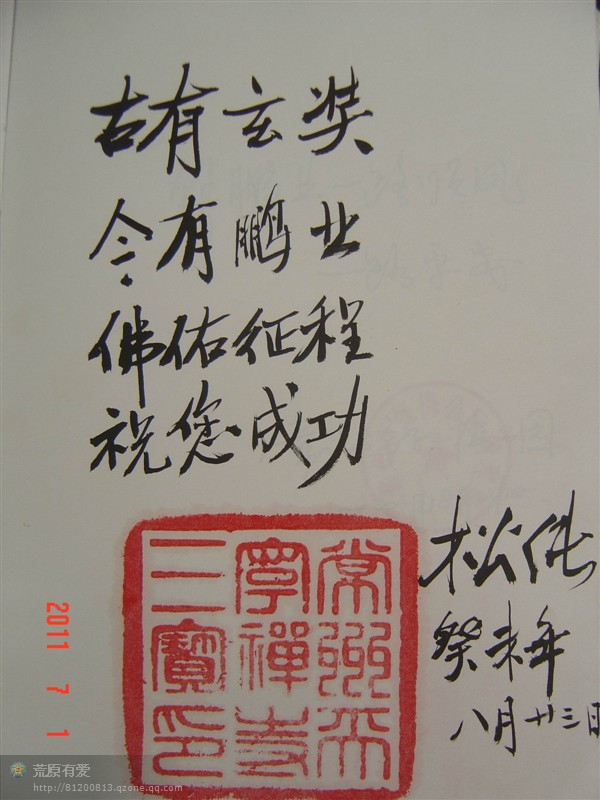 古有玄奘
今有鹏业
佛佑征程
祝您成功
松纯
癸未年
八月廿三日
常州天
寧禪寺
三寶印
2011 7 1
荒原有爱
http://81200813.qzone.qq.com